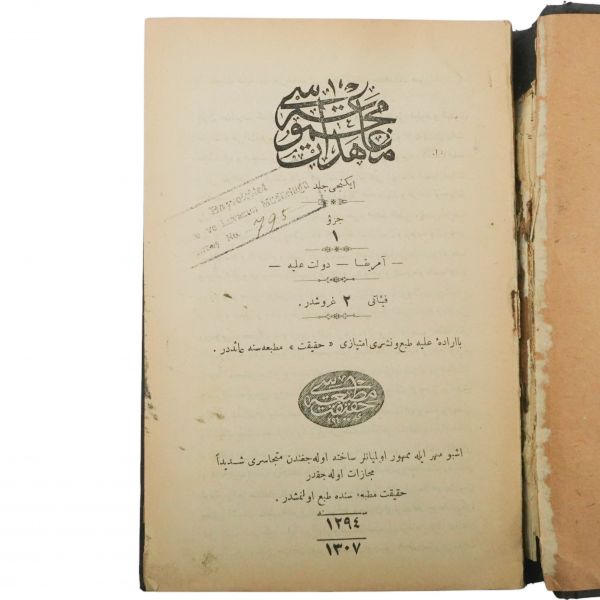 معاهدات مجموعه سی
ایکنجی جلد
جزؤ
١
— آمریقا — دولت علیه —
فیئاتی ٢ غروشدر .
بااراده‌ٔ علیه طبع و نشری امتیازی « حقیقت » مطبعه سنه عائددر .
حقیقت مطبعه سی
اشبو مهر ایله ممهور اولمیانلر ساخته اوله جغندن متجاسری شدیداً
مجازات اوله جقدر
حقیقت مطبعه سنده طبع اولنمشدر .
سنه
١٢٩٤
١٣٠٧
ve Levazım Müdürlüğü
No. 795